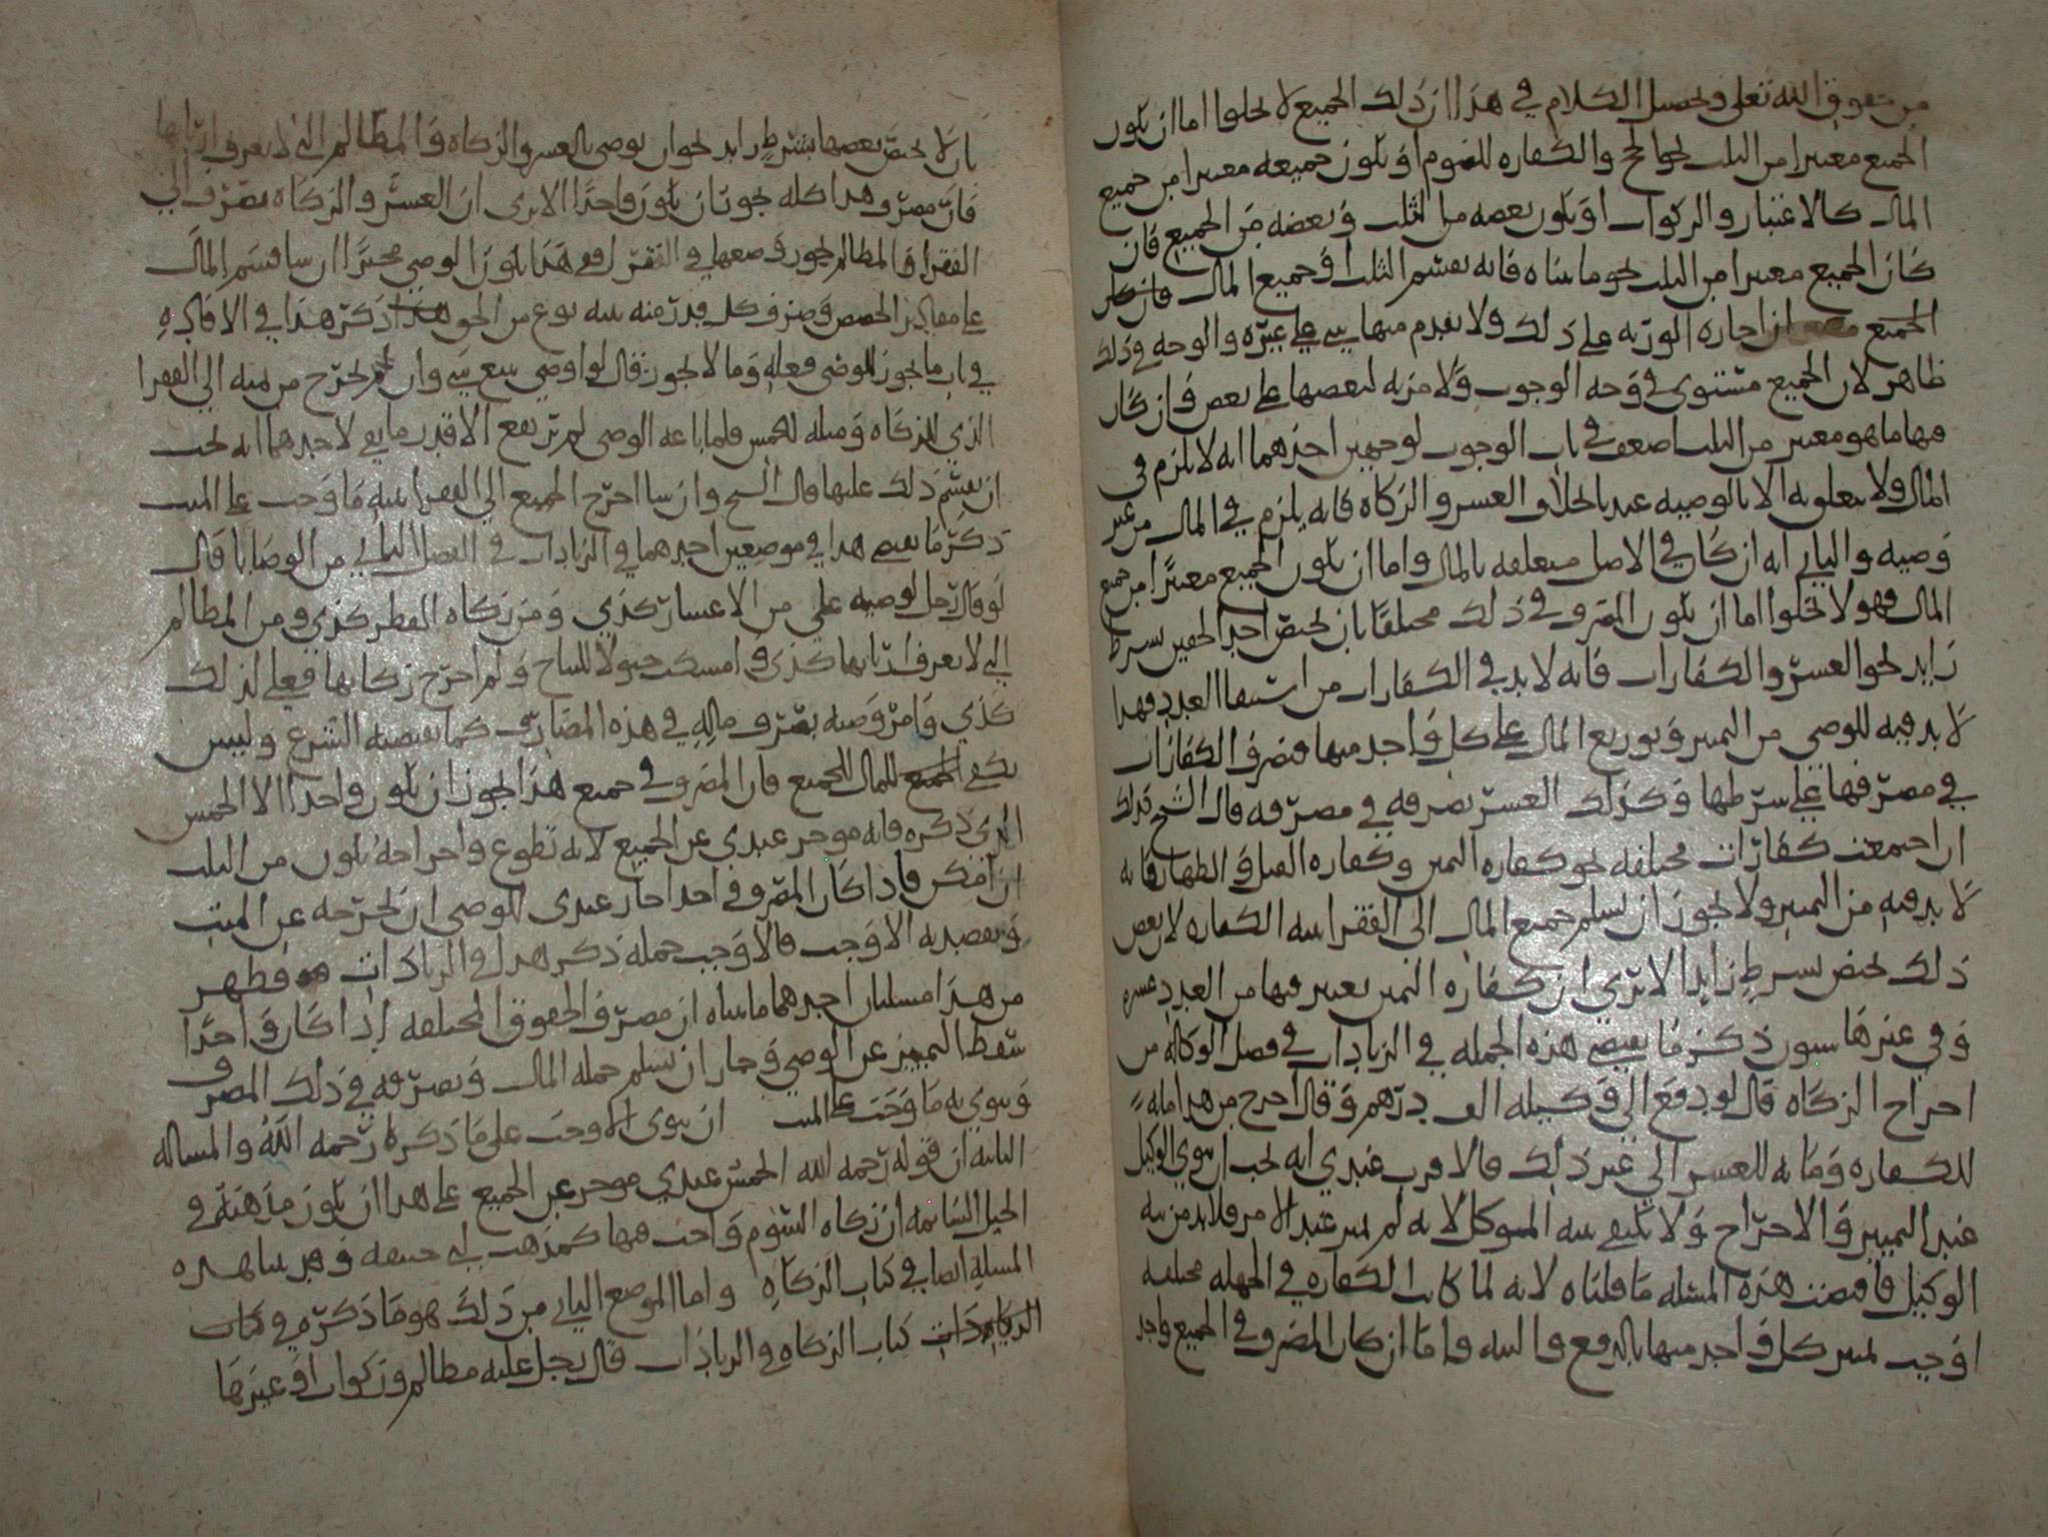 من حقوق الله تعلى وتحصيل الكلام في هذا ان ذلك الجميع لا يخلوا اما ان يكون
الجميع معتبرا من الثلث نحو الحج والكفاره للصوم او يكون جميعه معتبرا من جميع
المال كالاعشار والزكوات او يكون بعضه من الثلث وبعضه من الجميع فان
كان الجميع معتبرا من الثلث نحو ما بيناه فانه يقسم الثلث او جميع المال
الجميع ان اجازه الورثه على ذلك ولا يقدم منها شي على غيره والوجه في ذلك
ظاهر لان الجميع مستوى في وجه الوجوب ولا مزيه لبعضها على بعض وان كان
فيها ما هو معتبر من الثلث اضعف في باب الوجوب لوجهين احدهما انه لا يلزم في
المال ولا يتعلق به الا بالوصيه عندنا بخلاف العسر والزكاه فانه يلزم في المال من غير
وصيه والثاني انه ان كان في الاصل متعلقه بالمال واما ان يكون الجميع معتبرا من جميع
المال فهو لا يخلوا اما ان يكون المصروف في ذلك مختلفا بان يختص احد الحقين بشرط
زايد نحو العسر والكفارات فانه لا بد في الكفارات من استيفا العدد فهذا
لا بد فيه للوصي من التمييز وتوزيع المال على كل واحد منها فتصرف الكفارات
في مصرفها على شرطها وكذلك العسر يصرفه في مصرفه قال الشيخ وكذلك
ان اجتمعت كفارات مختلفه نحو كفاره اليمين وكفاره القتل والظهار فانه
لا بد فيه من التمييز ولا يجوز ان يسلم جميع المال الى الفقرا بنيه الكفاره لان بعض
ذلك يختص بشرط زايد الا ترى ان كفاره اليمين يعتبر فيها من العدد عشره
وفي غيرها ستون ذكر ما يقتضي هذه الجمله في الزيادات في فصل الوكاله من
اخراج الزكاه قال لو دفع الى وكيله الف درهم وقال اخرج من هذا مايه
للكفاره ومايه للعسر الى غير ذلك فالاقرب عندي انه يجب ان ينوي الوكيل
عند التمييز والاخراج ولا يكفي نيه الموكل لانه لم يميز عند الامر فلا بد من نيه
الوكيل فاقتضت هذه المسله ما قلناه لانه لما كانت الكفاره في الجهله مختلفه
اوجب تمييز كل واحد منها بالدفع والنيه واما ان كان المصروف في الجميع واحد
بان لا يختص بعضها بشرط زايد نحو ان يوصي بالعسر والزكاه والمظالم التي لا يعرف اربابها
فان مصرف هذا كله يجوز ان يكون واحدا الا ترى ان العسر والزكاه يصرف الى
الفقرا والمظالم يجوز وضعها في الفقرا ففي هذا يكون الوصي مخيرا ان شا قسم المال
على مقادير الحصص وصرف كل قدر منه بنيه نوع من الحق ذكر هذا في الافاده
في باب ما يجوز للوصي فعله وما لا يجوز قال لو اوصى ببيع شي وان يخرج من ثمنه الى الفقرا
الذي للزكاه ومثله للخمس فلما باعه الوصي لم يرتفع الا قدر ما يفي لاحدهما انه يجب
ان يقسم ذلك عليها قال الشيخ وان شا اخرج الجميع الى الفقرا بنيه ما وجب على الميت
ذكر ما يقتضي هذا في موضعين احدهما في الزيادات في الفصل الثاني من الوصايا قال
لو قال رجل لوصيه علي من الاعشار كذي ومن زكاه الفطر كذي ومن المظالم
التي لا يعرف اربابها كذي وامسكت خيولا للنتاج ولم اخرج زكاتها فعلي لذلك
كذي وامر وصيه بصرف ماله في هذه المصارف كما يقتضيه الشرع وليس
يكفي المال للجميع فان المصروف في جميع هذا يجوز ان يكون واحدا الا الخمس
الذي ذكره فانه موخر عندي عن الجميع لانه تطوع واخراجه يكون من الثلث
ان امكن فاذا كان المصروف في احدا جاز عندي للوصي ان يخرجه عن الميت
ويقصد به الاوجب فالاوجب جمله ذكر هذا في الزيادات فظهر
من هذا مسلتان احدهما ما بيناه ان مصرف الحقوق المختلفه اذا كان واحدا
سقط التمييز عن الوصي وجاز ان يسلم جمله المال ويصرفه في ذلك المصرف
وينوي به ما وجب على الميت ان ينوى الاوجب على ما ذكره رحمه الله والمساله
الثانيه ان قوله رحمه الله الخمس عندي موخر عن الجميع على هذا ان يكون مذهبه في
الخيل السايمه ان زكاه السوم واجب فيها كمذهب ابي حنيفه وقد بينا هذه
المسله ايضا في كتاب الزكاه واما الموضع الثاني من ذلك هو ما ذكره في كتاب
كتاب الزكاه في الزيادات قال رجل عليه مظالم وزكوات او غيرها